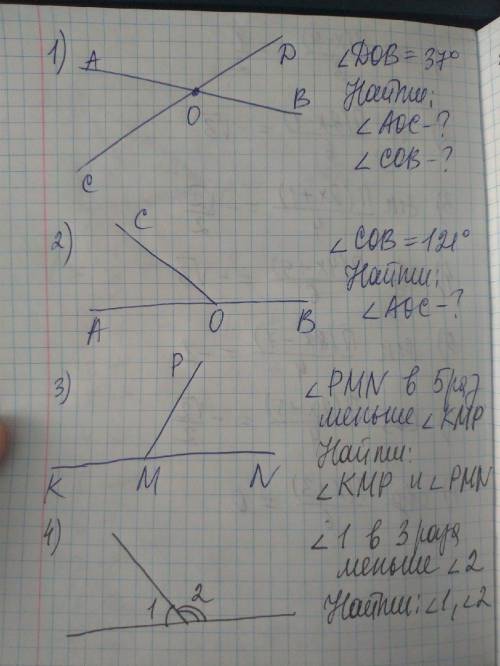 1)
A
D
O
B
C
∠DOB = 37°
Найти:
∠AOC - ?
∠COB - ?
2)
C
A
O
B
∠COB = 121°
Найти:
∠AOC - ?
3)
P
K
M
N
∠PMN в 5 раз
меньше ∠KMP
Найти:
∠KMP и ∠PMN
4)
1
2
∠1 в 3 раза
меньше ∠2
Найти: ∠1, ∠2